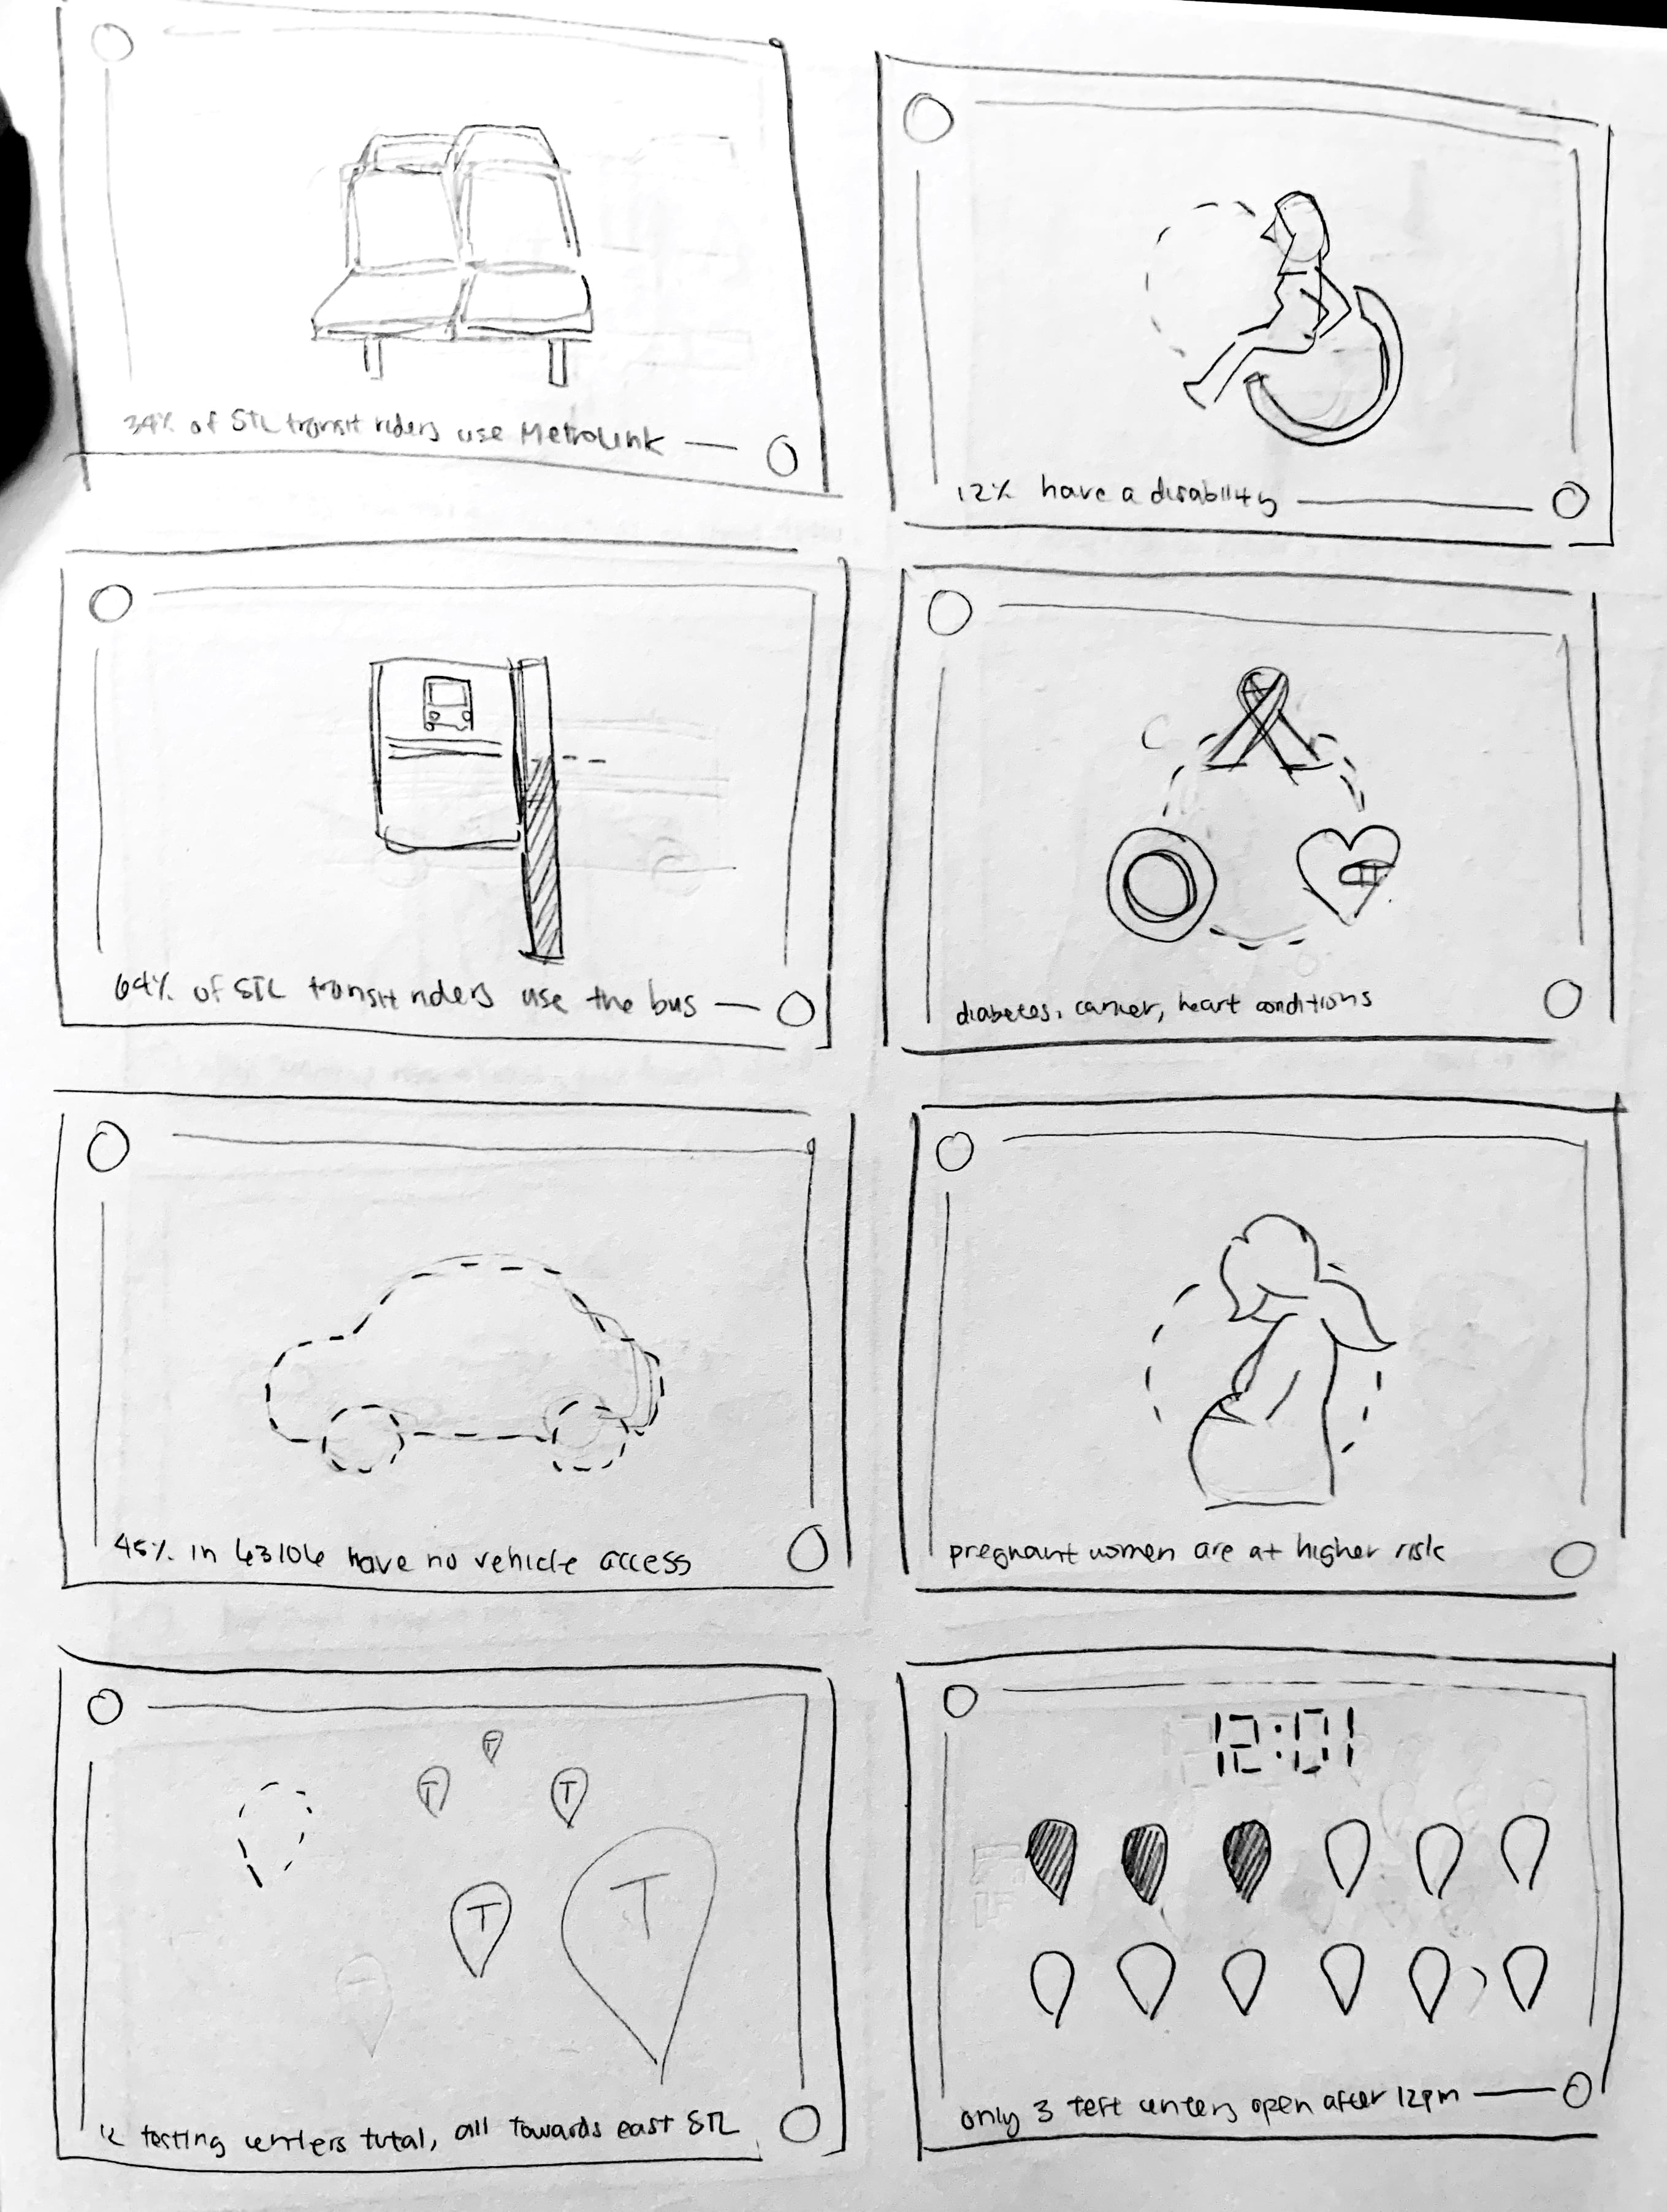 34% of STL transit riders use MetroLink
12% have a disability
64% of STL transit riders use the bus
diabetes, cancer, heart conditions
45% in 63106 have no vehicle access
pregnant women are at higher risk
T
T
T
T
T
12 testing centers total, all towards east STL
12:01
only 3 test centers open after 12pm